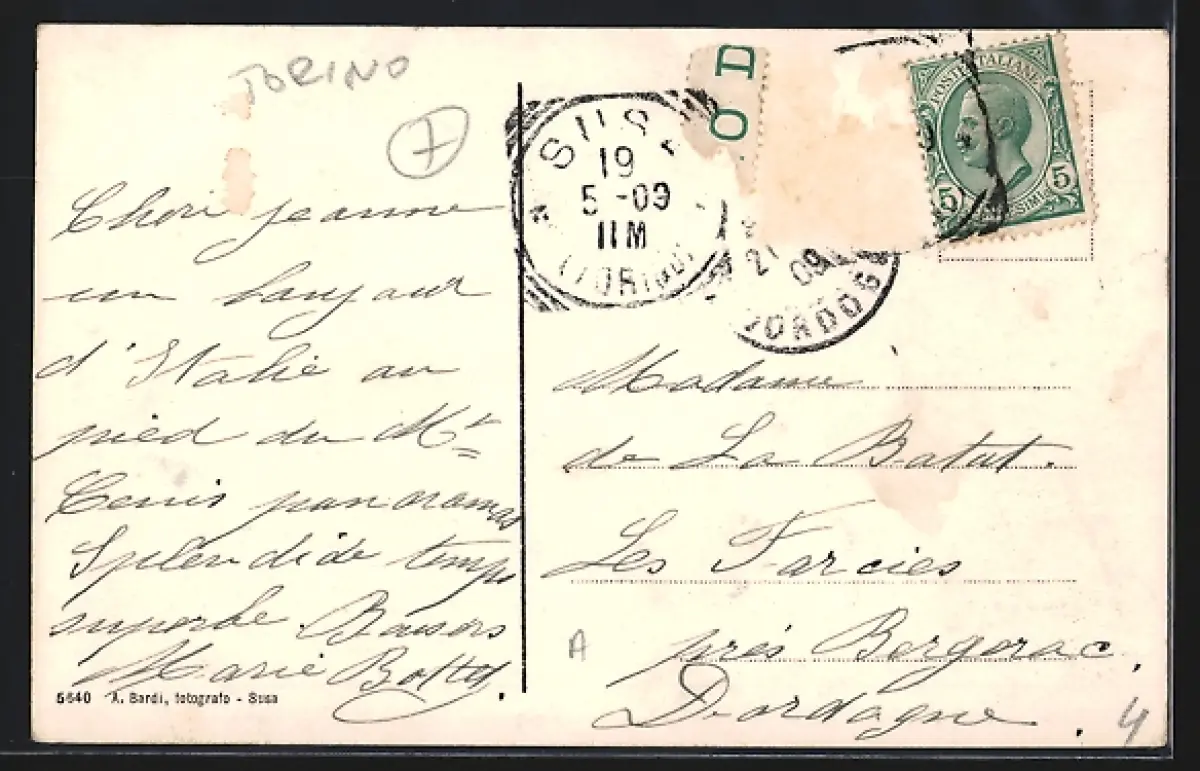 TORINO
Cheri jeanne
un bonjour
d'Italie au
pied du Mt
Cenis panoramas
Splendide temps
superbe. Baisers
Marie
5640 A. Bardi, fotografo - Susa
SUSA
19
5-09
11M
(TORINO)
O D
21 09
DORDOG
POSTE ITALIANE
5 5
CENTESIMI
Madame
de La Batut.
Les Farcies
près Bergerac.
Dordogne.
A
4